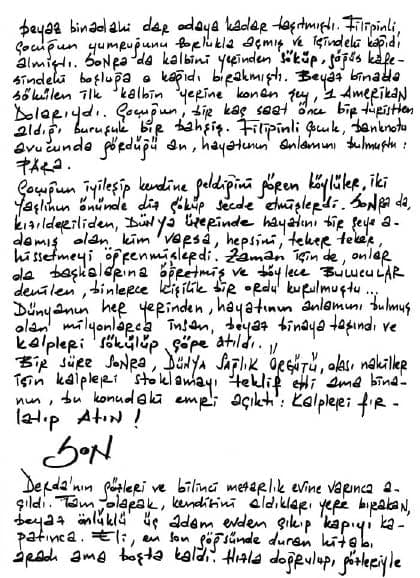 beyaz binadaki dar odaya kadar taşıtmıştı. Filipinli,
çocuğun yumruğunu zorlukla açmış ve içindeki kağıdı
almıştı. Sonra da kalbini yerinden söküp, göğüs kafe-
sindeki boşluğa o kağıdı bırakmıştı. Beyaz binada
sökülen ilk kalbin yerine konan şey, 1 Amerikan
Dolarıydı. Çocuğun, bir kaç saat önce bir turistten
aldığı buruşuk bir bahşiş. Filipinli çocuk, banknotu
avucunda gördüğü an, hayatının anlamını bulmuştu:
PARA.
Çocuğun iyileşip kendine geldiğini gören köylüler, iki
yaşlının önünde diz çöküp secde etmişlerdi. Sonra da,
kızılderiliden, Dünya üzerinde hayatını bir şeye a-
damış olan kim varsa, hepsini, teker teker,
hissetmeyi öğrenmişlerdi. Zaman içinde, onlar
da başkalarına öğretmiş ve böylece BULUCULAR
denilen, binlerce kişilik bir ordu kurulmuştu...
Dünyanın her yerinden, hayatının anlamını bulmuş
olan milyonlarca insan, beyaz binaya taşındı ve
kalpleri sökülüp çöpe atıldı.
Bir süre sonra, DÜNYA SAĞLIK ÖRGÜTÜ, olası nakiller
için kalpleri stoklamayı teklif etti ama bina-
nın, bu konudaki emri açıktı: Kalpleri fır-
latıp ATIN!
SON
Derda'nın gözleri ve bilinci mezarlık evine varınca a-
çıldı. Tam olarak, kendisini aldıkları yere bırakan,
beyaz önlüklü üç adam evden çıkıp kapıyı ka-
patınca. Eli, en son göğsünde duran kitabı
aradı ama boşta kaldı. Hızla doğrulup, gözleriyle